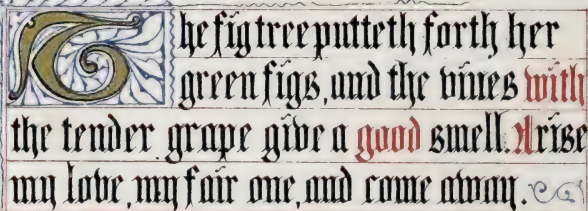 The fig tree putteth forth her
green figs, and the vines with
the tender grape give a good smell. Arise
my love, my fair one, and come away.